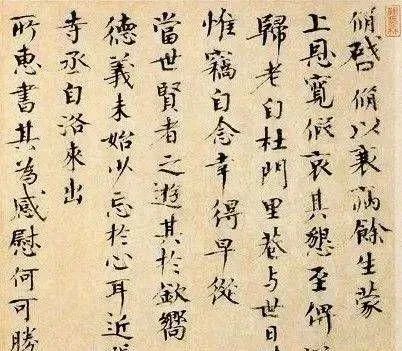 脩啓脩以衰病餘生蒙
上恩寬假哀其懇至俾
歸老自杜門里巷与世日
惟竊自念幸得早從
當世賢者之遊其於欽嚮
德義未始少忘於心耳近張
寺丞自洛來出
所惠書其為感慰何可勝